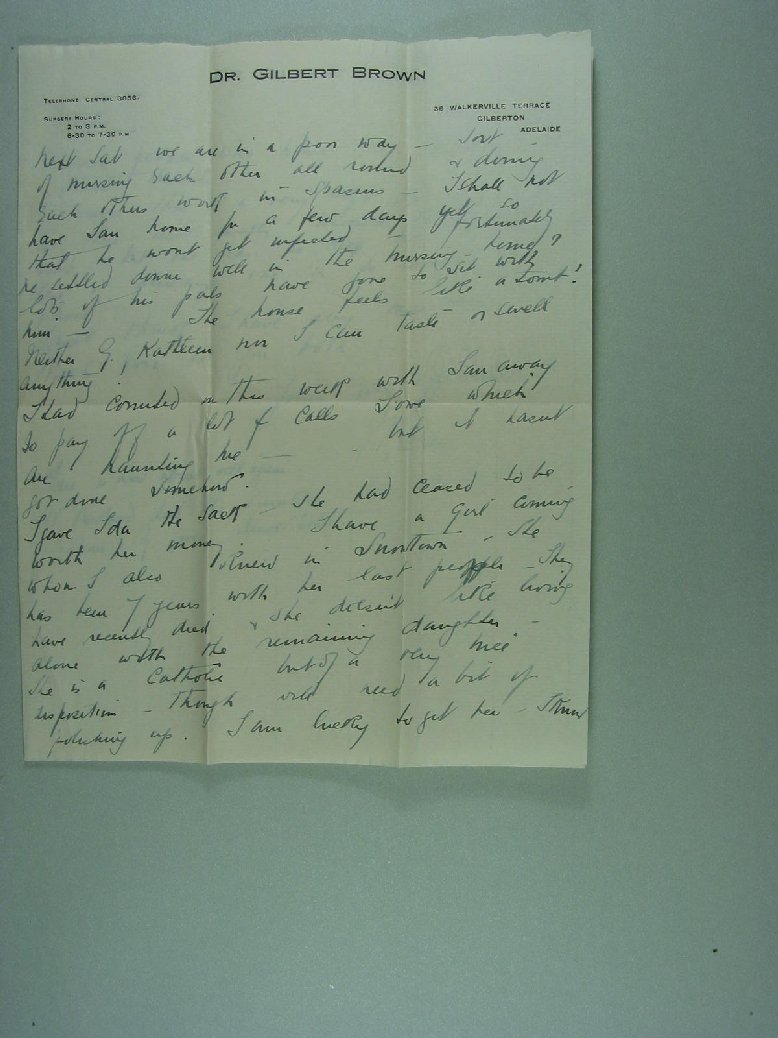 DR. GILBERT BROWN
TELEPHONE CENTRAL 3856.
SURGERY HOURS:
2 TO 3 P.M.
6-30 TO 7-30 P.M
36 WALKERVILLE TERRACE
GILBERTON
ADELAIDE
next Sat we are in a poor way — Sort
of nursing each other all round & doing
each others work in spasms — I shall not
have Ian home for a few days yet so
that he wont get infected — fortunately
he settled down well in the nursing home &
lots of his pals have gone to sit with
him — The house feels like a tomb!
Neither G, Kathleen nor I can taste or smell
anything.
I had counted on this week with Ian away
to pay off a lot of calls I owe which
are haunting me — but it hasnt
got done somehow.
I gave Ida the sack — she had ceased to be
worth her money. I have a girl coming
whom I also knew in Snowtown. She
has been 7 years with her last people — They
have recently died & she doesnt like living
alone with the remaining daughter —
She is a Catholic but of a very nice
disposition — though will need a bit of
polishing up. I am lucky to get her —